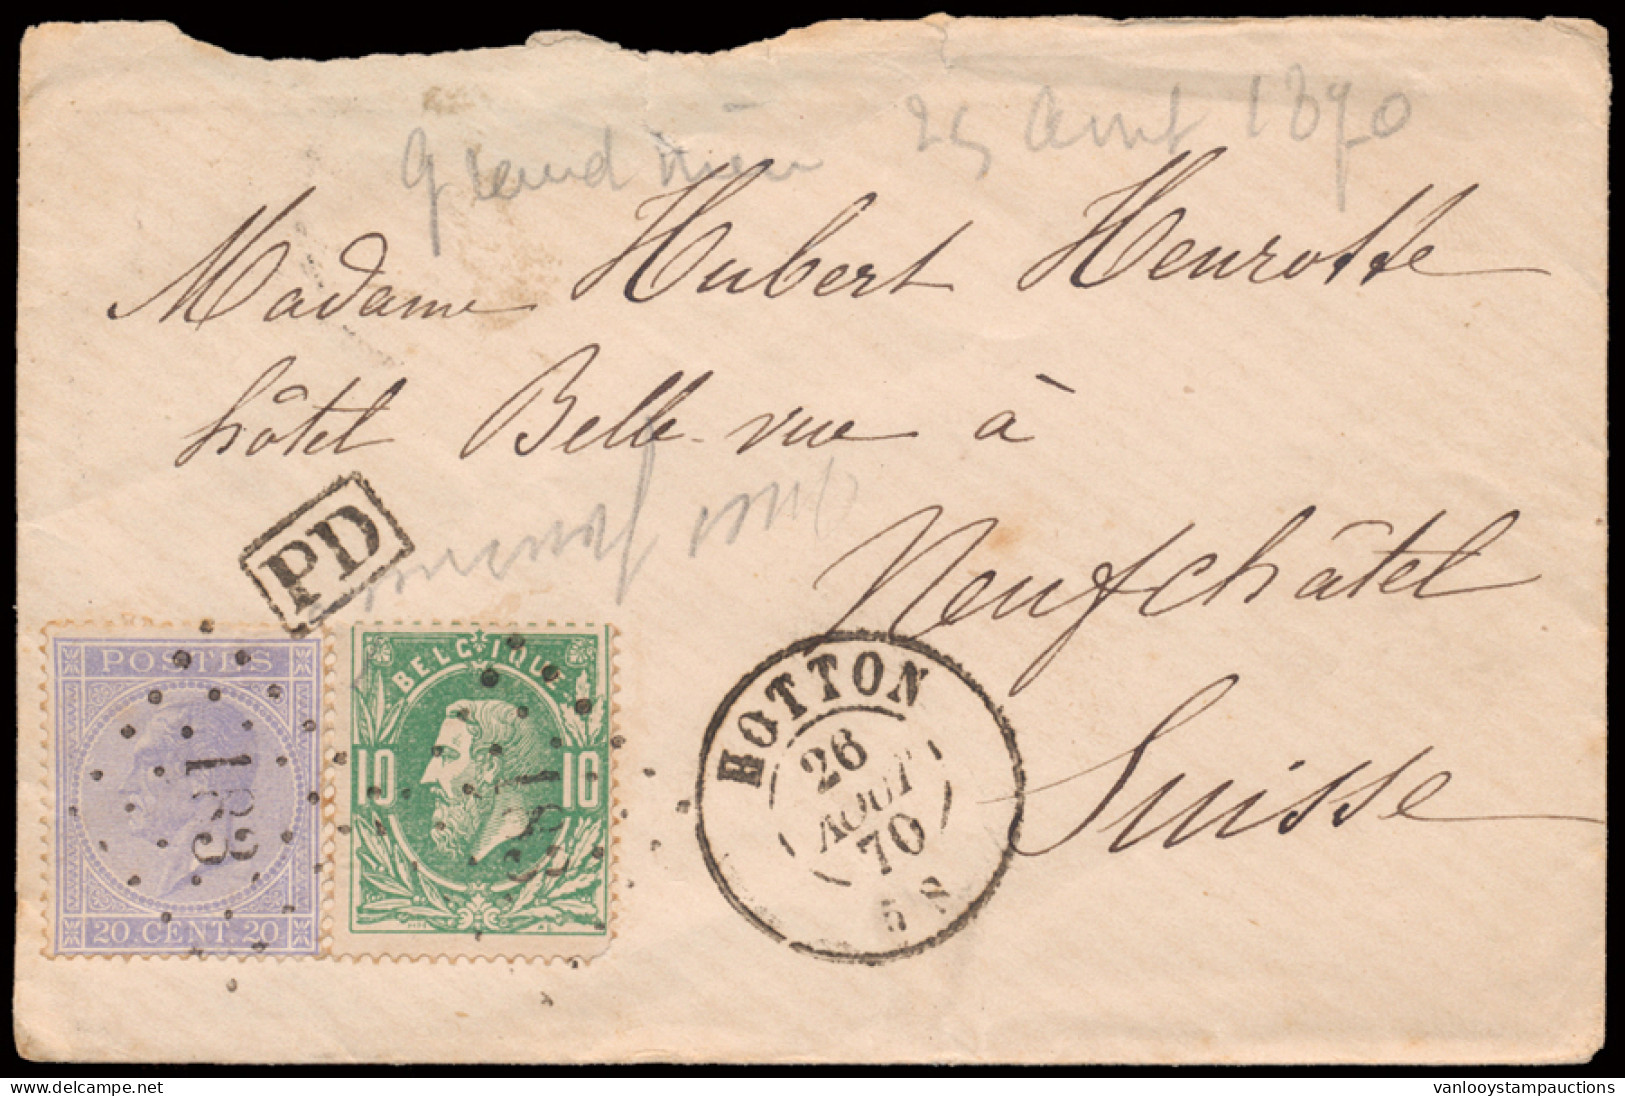 25 Aout 1870
Madame Hubert Henrotte
hôtel Belle-vue à
Neufchâtel
Suisse
PD
POSTES
183
20 CENT. 20
BELGIQUE
10 10
183
HOTTON
26
AOUT
70
5 S
vanlooy.delcampe.net
vanlooystampauctions